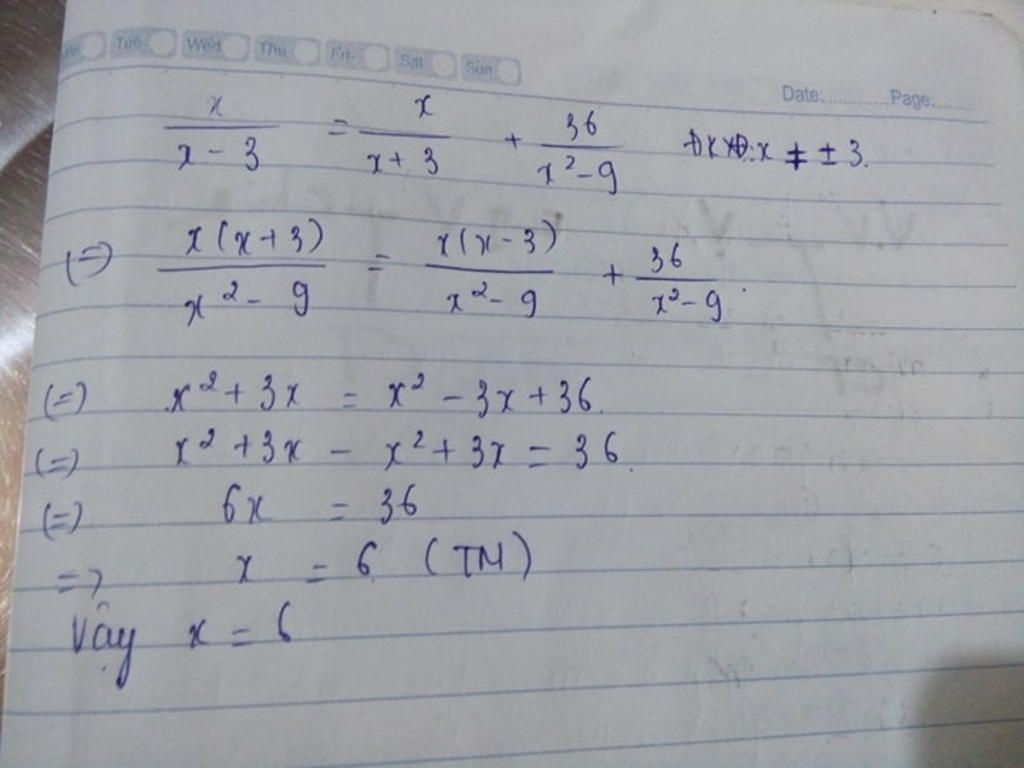 Tue Wed Thu Fri Sat Sun
Date:............Page:.........
x/(x - 3) = x/(x + 3) + 36/(x² - 9) ĐKXĐ: x ≠ ± 3.
(=) x(x + 3)/(x² - 9) = x(x - 3)/(x² - 9) + 36/(x² - 9).
(=) x² + 3x = x² - 3x + 36.
(=) x² + 3x - x² + 3x = 36.
(=) 6x = 36
=> x = 6 (TM)
Vậy x = 6